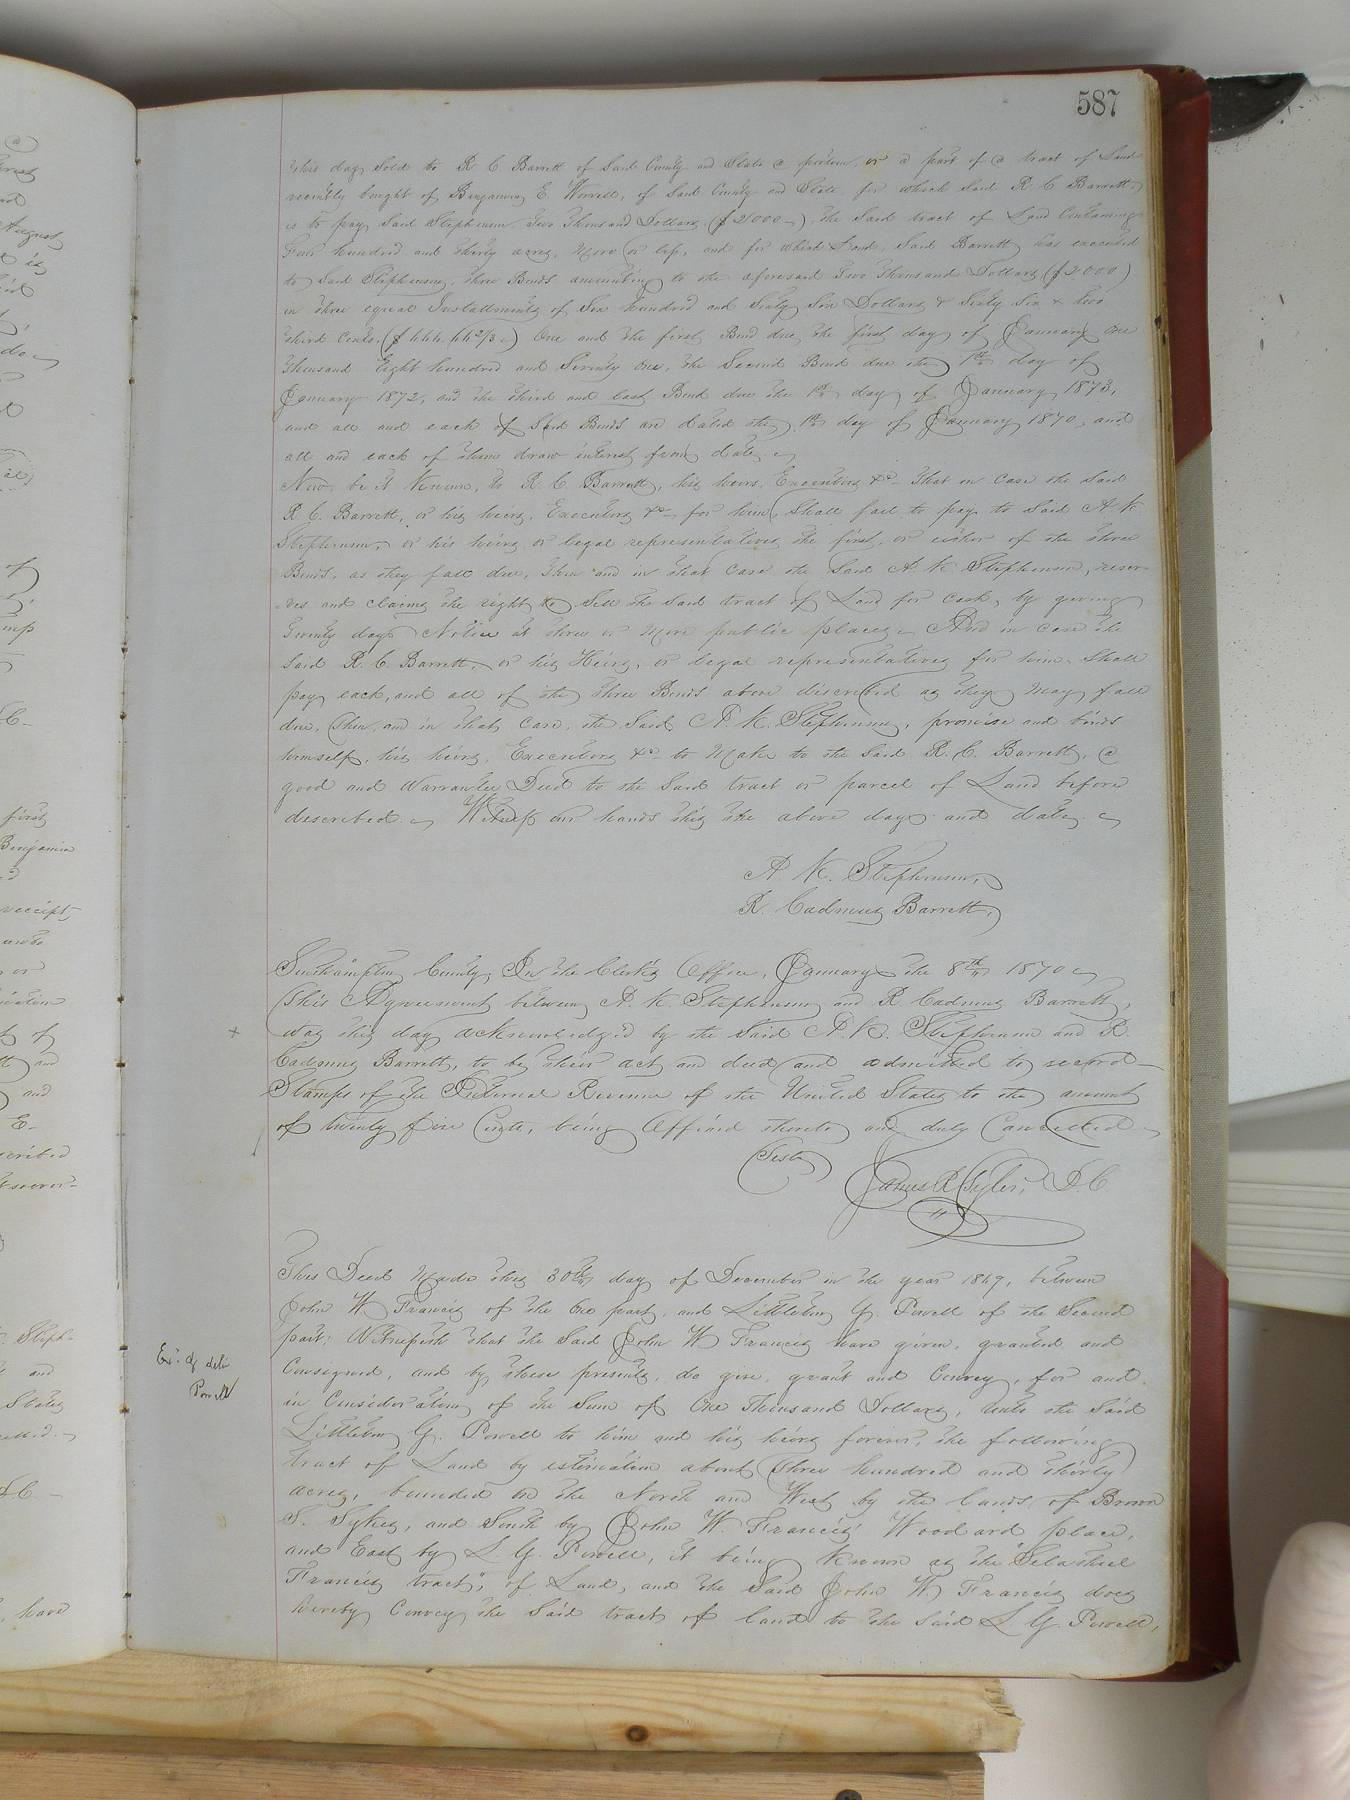 587
this day Sold to R C Barrett of Said County and State a portion or a part of a tract of Land
recently bought of Benjamin E. Worrell, of Said County and State for which Said R. C Barrett,
is to pay Said Stephenson Two Thousand Dollars ($2000—), the Said tract of Land Containing
Four hundred and thirty acres, More or less, and for which Land, Said Barrett has executed
to Said Stephenson, three Bonds amounting to the aforesaid Two Thousand Dollars ($2000)
in three equal Installments of Six hundred and Sixty Six Dollars & Sixty Six & two
third Cents. ($666.66 2/3—) One and the first Bond due the first day of January One
Thousand Eight hundred and Seventy One, the Second Bond due the 1st day of
January 1872, and the third and last Bond due the 1st day of January 1873,
and all and each of Said Bonds are dated the 1st day of January 1870, and
all and each of them draw interest from date
Now be it Known, to R. C. Barrett, his heirs, Executors &c— That in Case the Said
R C. Barrett, or his heirs, Executors &c— for him, Shall fail to pay to Said A K
Stephenson, or his heirs or legal representatives the first, or either of the three
Bonds, as they fall due, then and in that Case the Said A. K. Stephenson, reser-
-ves and claims the right to Sell the Said tract of Land for Cash, by giving
Twenty days Notice at three or More public places. And in Case the
Said R. C. Barrett, or his Heirs, or legal representatives for him, Shall
pay each, and all of the three Bonds above discribed as they May fall
due, Then, and in that Case, the Said A. K. Stephenson, promise and binds
himself, his heirs, Executors &c— to Make to the Said R. C. Barrett, a
good and Warrantee Deed to the Said tract or parcel of Land before
described. Witness our hands this the above day and date.
A K. Stephenson,
R. Cadmus Barrett,
Southampton County, In the Clerk's Office, January the 8th 1870
This Agreement between A. K. Stephenson and R Cadmus Barrett,
was this day acknowledged by the Said A. K. Stephenson and R.
Cadmus Barrett, to be their act and deed and admitted to record—
Stamps of the Internal Revenue of the United States to the amount
of twenty five Cents, being Affixed thereto and duly Cancelled
Teste
James R Tyler, D. C.
This Deed Made this 30th day of December in the year 1869, between
John W Francis of the One part, and Littleton G. Powell of the Second
part: Witnesseth that the Said John W Francis have given, granted and
Consigned, and by these presents, do give, grant and Convey, for and
in Consideration of the Sum of One Thousand Dollars, Unto the Said
Ex'd & deld
Powell
Littleton G. Powell to him and his heirs forever, the following
tract of Land by estimation about Three hundred and thirty
acres, bounded on the North and West by the lands of Brown
S. Sykes, and South by John W. Francis' Woodard place,
and East by L G. Powell, it being known as the "Selathiel
Francis tract", of Land, and the Said John W. Francis does
hereby Convey the Said tract of land to the Said L G. Powell,